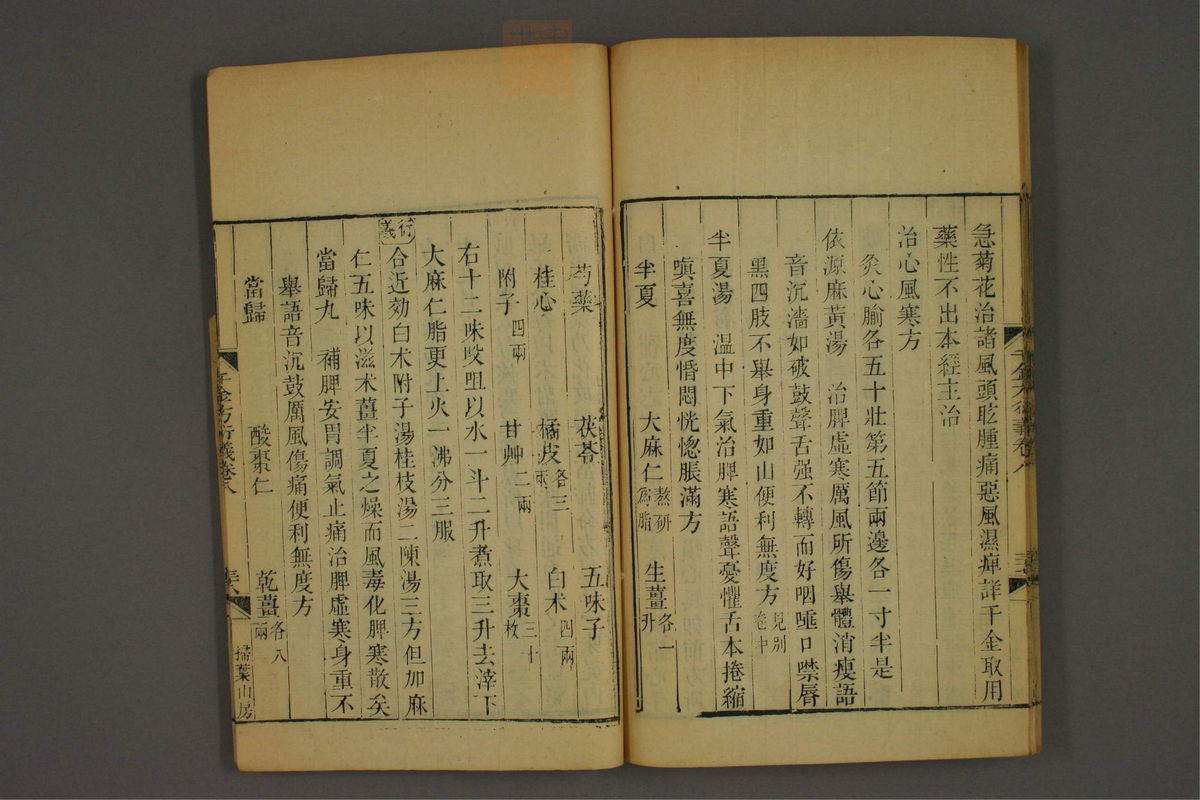 急菊花治諸風頭眩腫痛惡風濕痺詳千金取用
藥性不出本經主治
治心風寒方
灸心腧各五十壯第五節兩邊各一寸半是
依源麻黃湯　治脾虛寒厲風所傷舉體消瘦語
音沉濇如破鼓聲舌强不轉而好咽唾口噤唇
黑四肢不舉身重如山便利無度方見別卷中
半夏湯　溫中下氣治脾寒語聲憂懼舌本捲縮
嗔喜無度惛悶恍惚脹滿方
半夏　大麻仁熬研爲脂　生薑各一升
芍藥　茯苓　五味子
桂心　橘皮各三兩　白朮四兩
附子四兩　甘艸二兩　大棗三十枚
右十二味㕮咀以水一斗二升煮取三升去滓下
大麻仁脂更上火一沸分三服
衍義　合近効白朮附子湯桂枝湯二陳湯三方但加麻
仁五味以滋朮薑半夏之燥而風毒化脾寒散矣
當歸丸　補脾安胃調氣止痛治脾虛寒身重不
舉語音沉鼓厲風傷痛便利無度方
當歸　酸棗仁　乾薑各八兩
千金方衍義卷八
掃葉山房